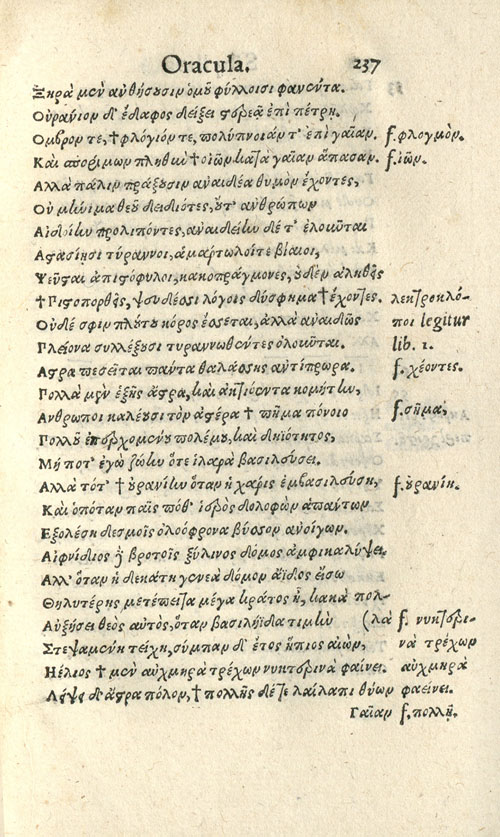 Oracula. 237
Ξηρὰ μὲν ἀνθήσουσιν ὁμοῦ φύλλοισι φανέντα.
Οὐράνιον δ' ἔδαφος δείξει στερεᾷ ἐπὶ πέτρῃ.
Ὄμβρον τε, †φλόγιόν τε, πολύπνοιάν τ' ἐπὶ γαῖαν. f. φλογμὸν.
Καὶ σπορίμων πληθὺν †οἰῶν κατὰ γαῖαν ἅπασαν. f. ἰῶν.
Ἀλλὰ πάλιν πράξουσιν ἀναιδέα θυμὸν ἔχοντες,
Οὐ μήνιμα θεοῦ δειδιότες, οὔτ' ἀνθρώπων
Αἰδοίην προλιπόντες, ἀναιδείην δέ τ' ἑλοῦνται
τύραννοι, ἁμαρτωλοί τε βίαιοι,
Ψεῦσται ἀπιστόφυλοι, κακοπράγμονες, οὐδὲν ἀληθὴς
†Πιστοπορθὴς, ψευδέσσι λόγοις δύσφημα †ἔχοντες. λεκτροκλό-
Οὐδέ σφιν πλούτου κόρος ἔσσεται, ἀλλὰ ἀναιδῶς ποι legitur
Πλείονα συλλέξουσι τυραννωθέντες ὀλοῦνται. lib. 1.
Ἄστρα πεσεῖται πάντα θαλάσσης ἀντίπρωρα. f. χέοντες.
Πολλὰ μὲν ἑξῆς ἄστρα, καὶ ἀκτιόεντα κομήτην,
Ἄνθρωποι καλέουσι τὸν ἀστέρα † πῆμα πόνοιο f. σῆμα,
Πολλοῦ ἐπερχομένου πολέμου, καὶ δηιότητος,
Μή ποτ' ἐγὼ ζώην ὅτε ἱλαρὰ βασιλεύσει.
Ἀλλὰ τότ' † οὐρανίην ὅταν ἡ χάρις ἐμβασιλεύσῃ, f. οὐρανίη.
Καὶ ὁπόταν παῖς πόθ' ἱερὸς δολοφῶν ἁπάντων
Ἐξολέσῃ δεσμοῖς ὀλοόφρονα βύσσον ἀνοίγων.
Αἰφνίδιος δὲ βροτοῖς ξύλινος δόμος ἀμφικαλύψει.
Ἀλλ' ὅταν ἡ δεκάτη γενεὰ δόμον ἄϊδος εἴσω
Θηλυτέρης μετέπειτα μέγα κράτος ᾗ, κακὰ πολ-
Αὐξήσει θεὸς αὐτὸς, ὅταν βασιληΐδα τιμὴν (λὰ f. νυκτερι-
Στεψαμένη τεύχῃ, σύμπαν δ' ἔτος ἤπιος αἰὼν, νὰ τρέχων
Ἥλιος † μὲν αὐχμηρὰ τρέχων νυκτερινὰ φαίνει. αὐχμηρὰ
Λείψει δ' ἄστρα πόλον, † πολλῆς δέ τε λαίλαπι θύων φαείνει.
Γαῖαν f. πολλῇ.